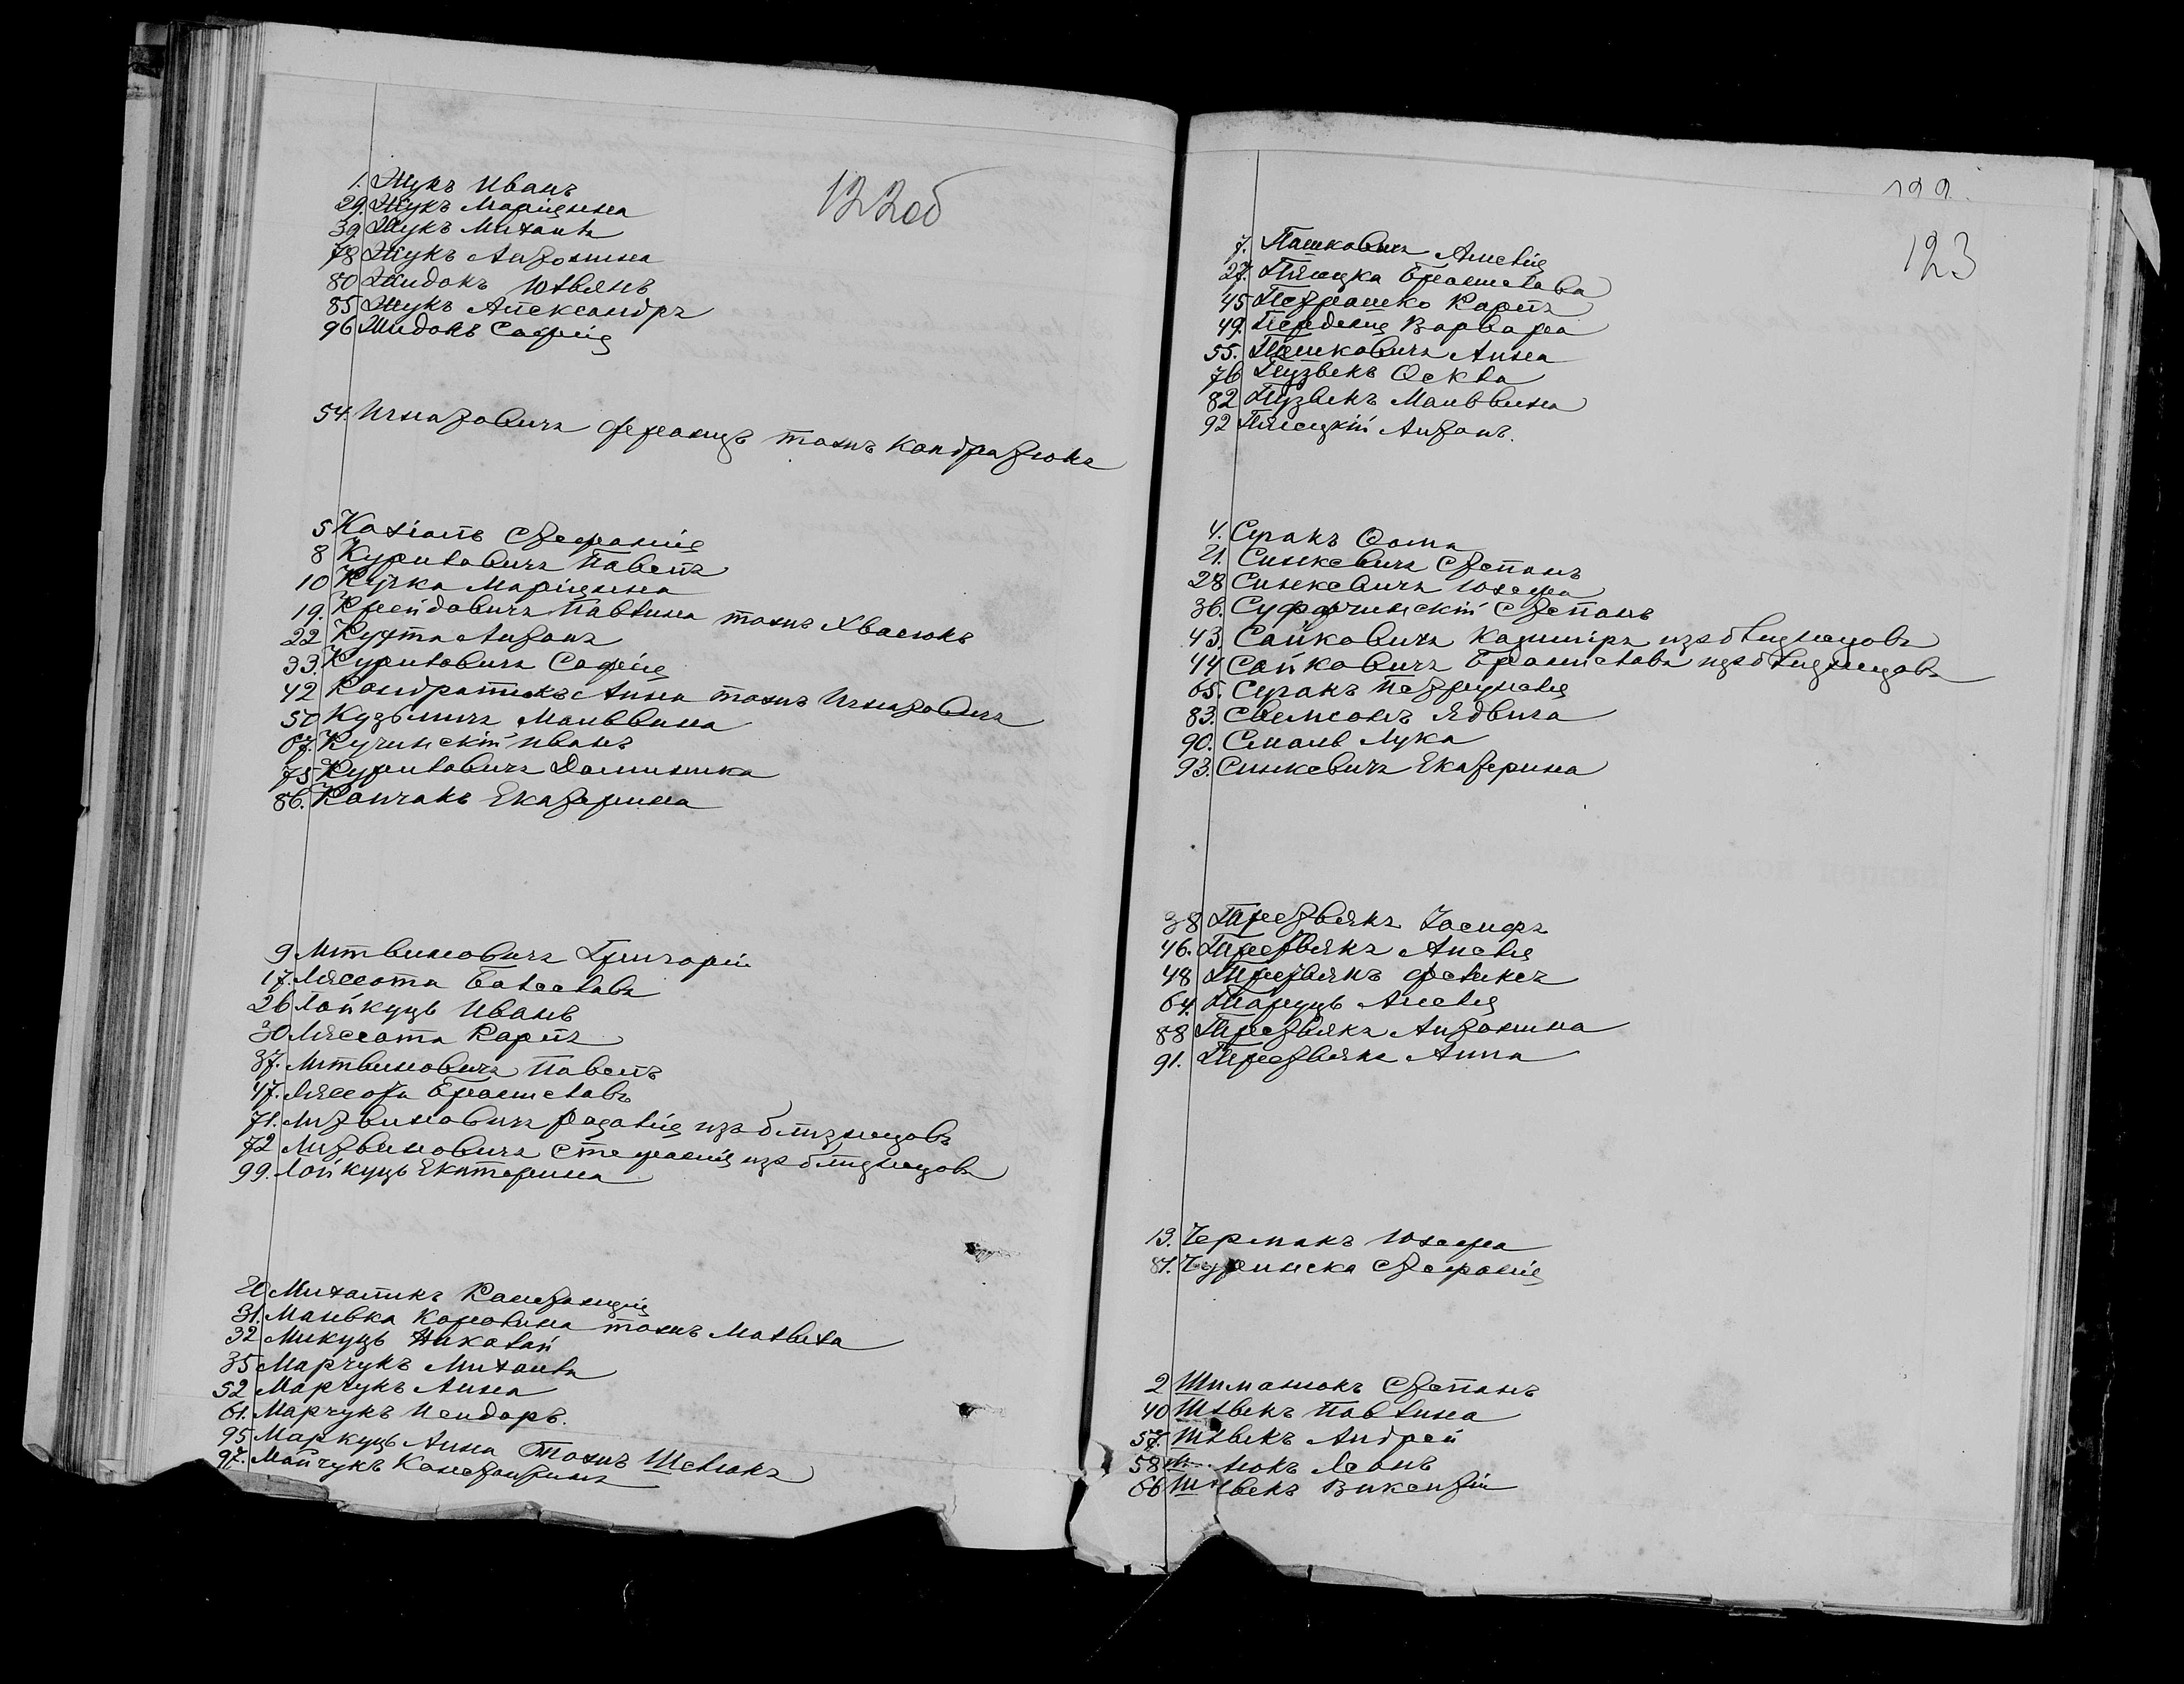 122об
1. Жукъ Иванъ
29. Жукъ Марцiянна
39 Жукъ Михаилъ
78 Жукъ Антонина
80 Жидокъ Юльянъ
85 Жукъ Александръ
96 Жидокъ Софiя
54. Игнатовичъ Францъ тожъ Кондратюкъ
5 Касiанъ Стефанiя
8 Куриловичъ Павелъ
10 Кучка Марцiянна
19. Крейдовичъ Павлина тожъ Хвасюкъ
22 Кухта Антонъ
33. Куриловичъ Софiя
42 Кондратюкъ Анна тожъ Игнатовичъ
50 Кузьмичъ Мальвина
67. Кучинскiй Иванъ
75 Куриловичъ Доминика
86. Колчакъ Екатерина
9 Литвиновичъ Григорiй
17. Лясота Болеславъ
26 Лойкуць Иванъ
30 Лясота Карлъ
37. Литвиновичъ Павелъ
47. Лясота Брониславъ
71. Литвиновичъ Розалiя изъ близнецовъ
72 Литвиновичъ Стефанiя изъ близнецовъ
99. Лойкуць Екатерина
20 Михаликъ Констанцiя
31. Малевка Каролина тожъ
32 Микуць Николай
35 Марчукъ Михаилъ
52 Марчукъ Анна
61. Марчукъ Исидоръ.
95 Маркуць Анна тожъ Шелюкъ
97. Майчукъ Константинъ
122.
123
7. Пашковичъ Амелiя
27. Плиска Бронислава
45 Петрашко Карлъ
49. Варвара
55. Пашковичъ Анна
76 Пузвекъ Фекла
82 Пузвекъ Мальвина
92 Плисцкiй Антонъ.
4. Суракъ Фома
21. Синкевичъ Степанъ
28 Синкевичъ Юзефа
36. Суффчинскiй Степанъ
43. Сайковичъ Казимiръ изъ близнецовъ
44 Сайковичъ Брониславъ изъ близнецовъ
65. Суракъ Петрунеля
83. Свенсонъ Ядвига
90. Смаль Лука
93. Синкевичъ Екатерина
38 Третьякъ Iосифъ
46. Третьякъ Амелiя
48 Третьякъ Феликсъ
64. Таруць Амелiя
88 Третьякъ Антонина
91. Третьякъ Анна
13. Чермакъ Юзефа
81. Стефанiя
2 Шиманюкъ Степанъ
40 Шлвекъ Павлина
57. Шлвекъ Андрей
58 Леонъ
66 Викентiй